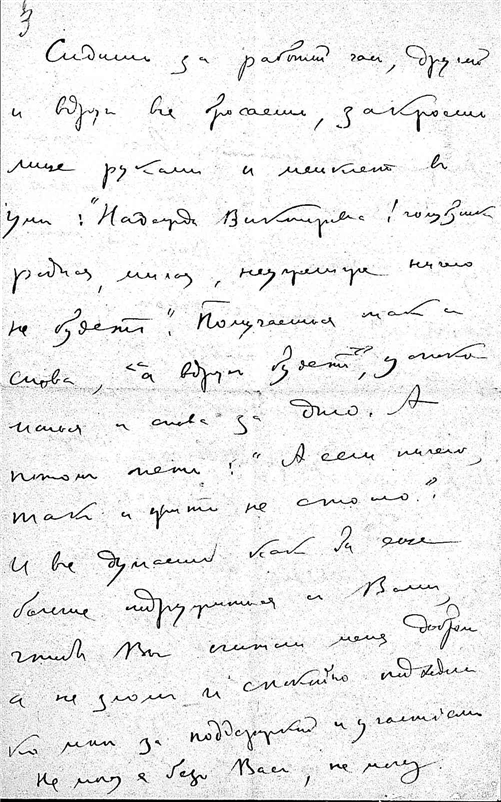 3
Сидишь за работой час, другой
и вдруг все бросаешь, закроешь
лицо руками и мелькает въ
умѣ: "Надежда Викторовна! голубушка
родная, милая, ничего
не будетъ". так и
снова, "а вдругъ будетъ", успоко
ишься и снова за дѣло. А
потом опять: "А если ничего,
так и жить не стоило".
И все думаешь как бы еще
больше подружиться с Вами,
чтобы Вы считали меня добрым
а не злым и спокойно подходили
ко мне за поддержкой и участием
Не могу я безъ Васъ, не могу.